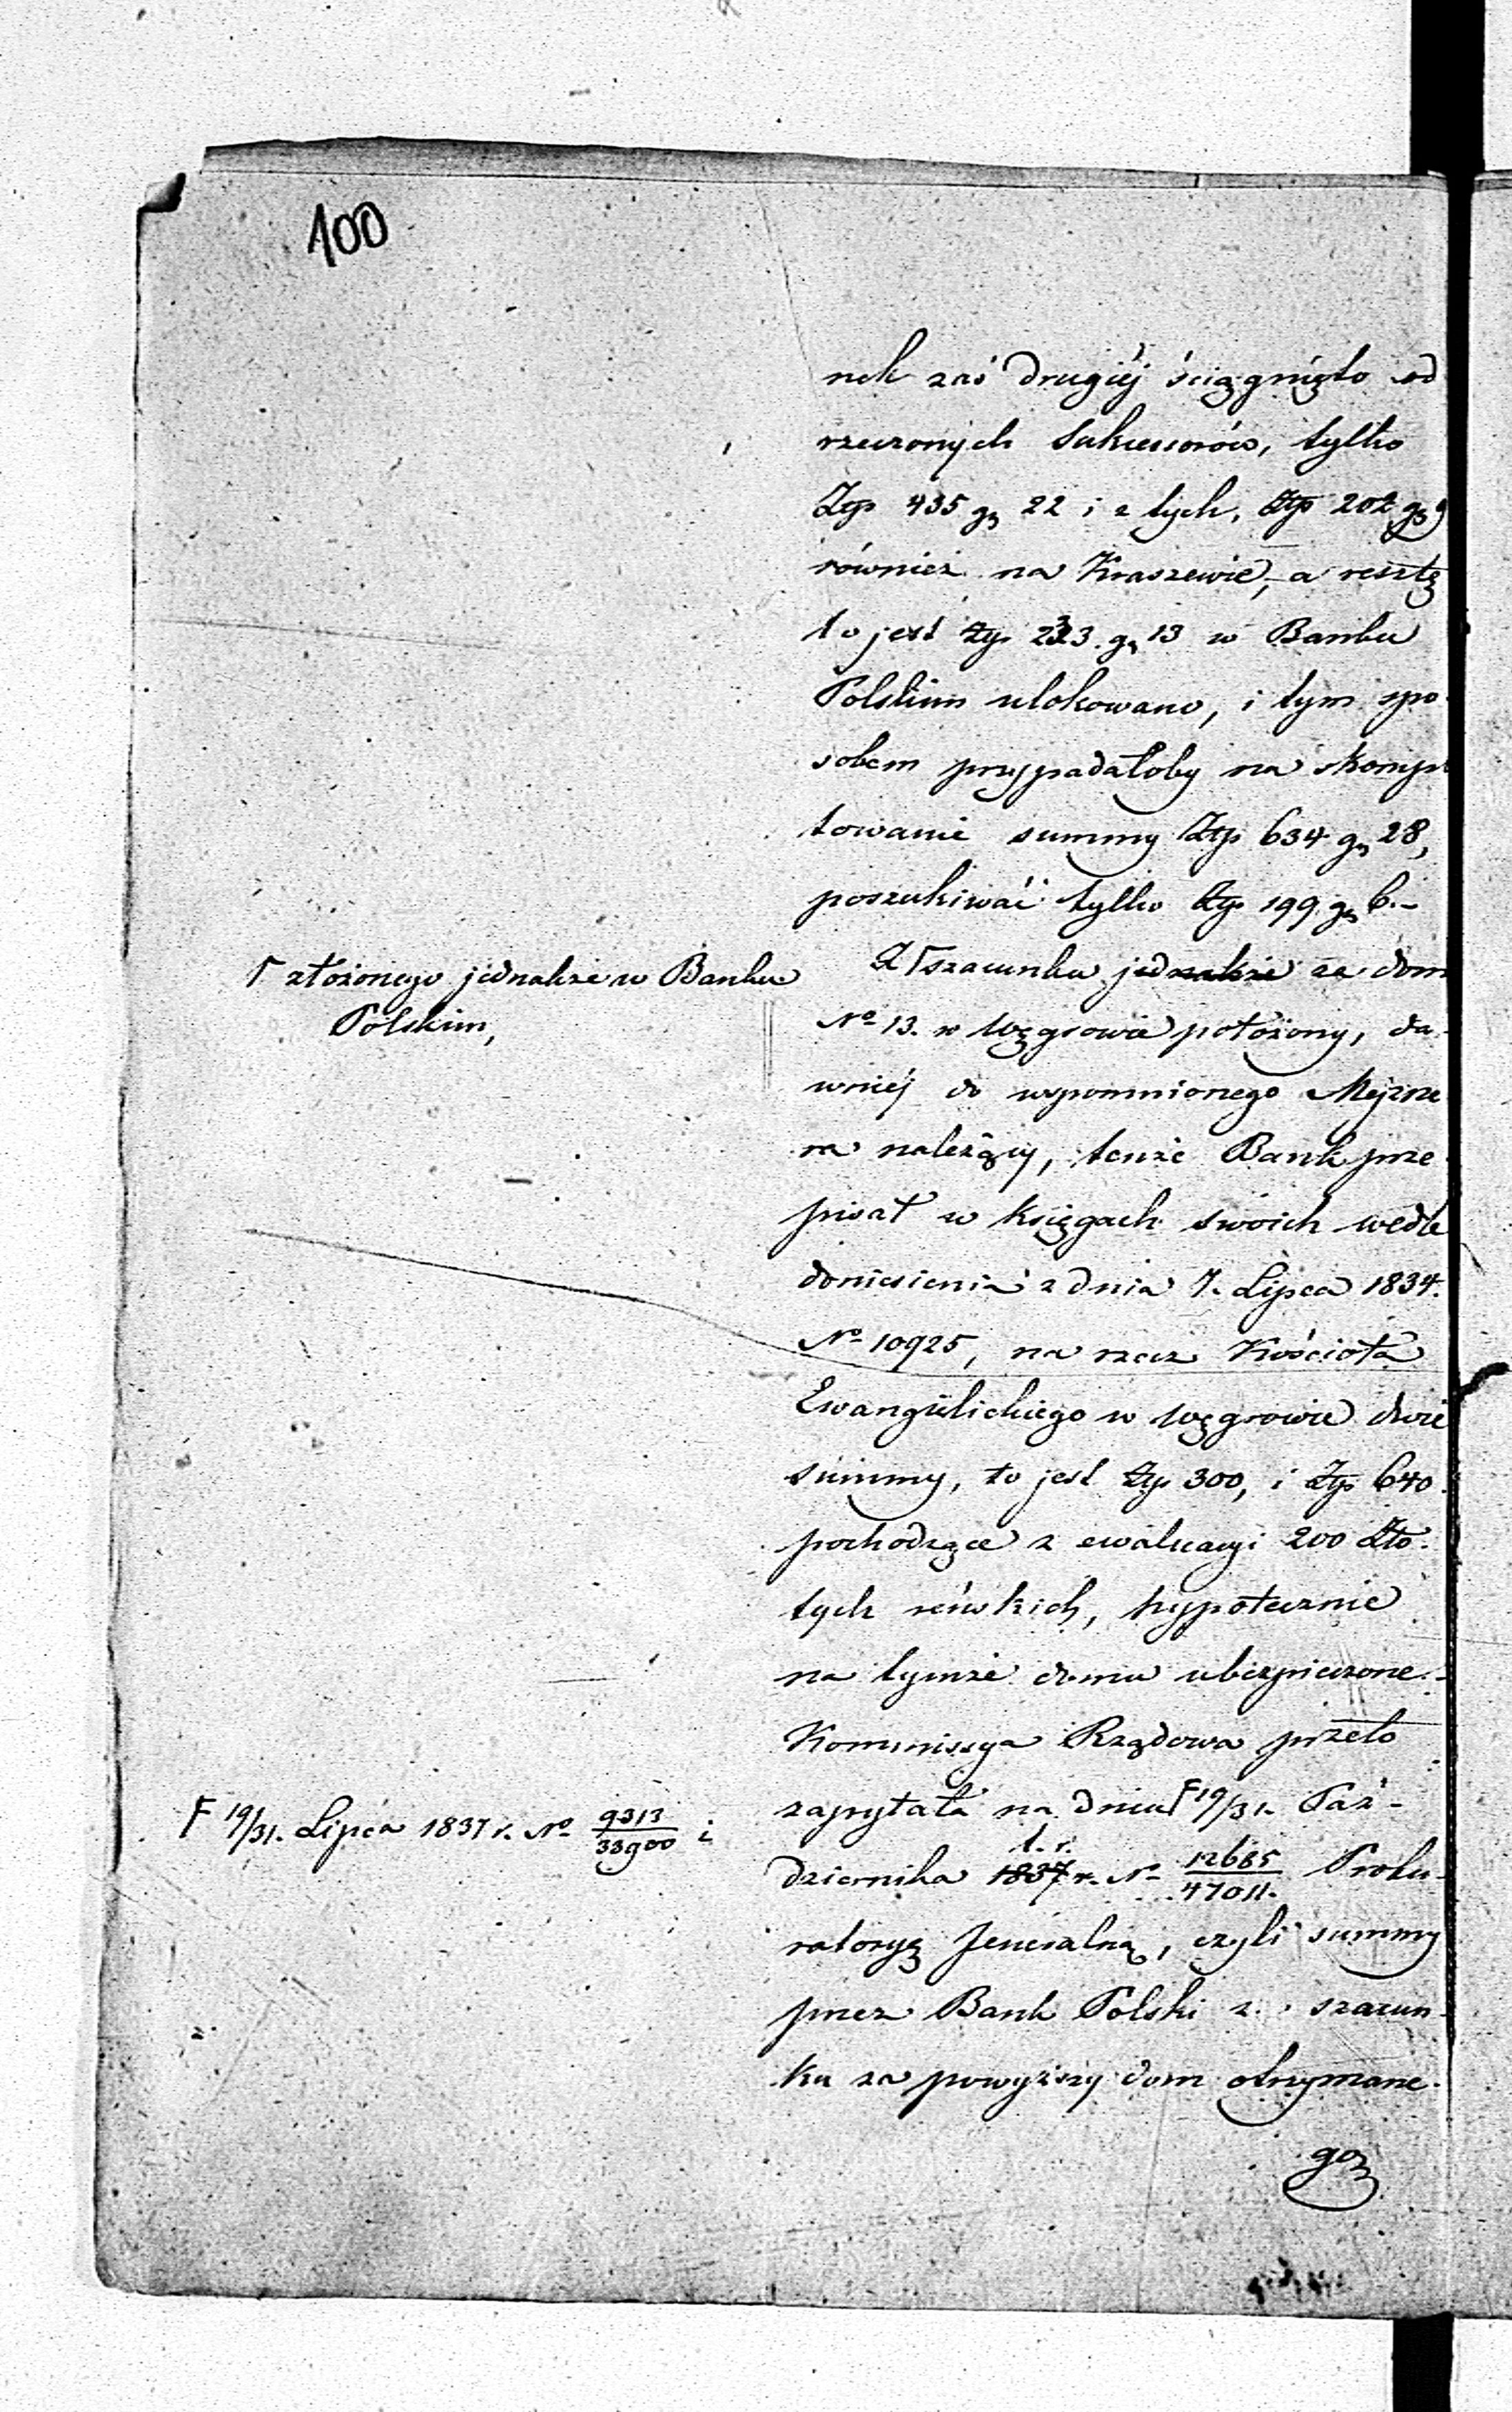 100
nek zaś drugiéj ściągnięto od
rzeczonych Sukcessorów, tylko
Złp 435 gr 22 i z tych, Złp 202 gr 9
również na Kraszewie, a resztę
to jest Złp 233. gr 13 w Banku
Polskim ulokowano, i tym spo-
sobem przypadałoby na skomple
towanie summy Złp 634 gr 28,
poszukiwać tylko Złp 199 gr 6.-
Z Γ szacunku jednakże za dom
Γ złożonego jednakże w Banku
Polskim,
No 13. w Węgrowie położony, da-
wniéj do wspomnionego Mejzne
ra należący, tenże Bank prze-
pisał w księgach swoich wedle
doniesienia z dnia 7. Lipca 1834.
No 10925, na rzecz Kościoła
Ewangielickiego w Węgrowie dwie
summy, to jest Złp 300, i Złp 640.
pochodzące z ewaluacyi 200 Zło-
tych reńskich, hypotecznie
na tymże domu ubezpieczone.-
Kommissya Rządowa przeto
zapytała na dniu F 19/31. Paź-
F 19/31. Lipca 1837 r. No 9313/33900 i
t. r.
dziernika 1837 r. No 12685/47011. Proku-
ratoryą Jeneralną, czyli summy
przez Bank Polski z szacun-
ku za powyższy dom otrzymane-
go